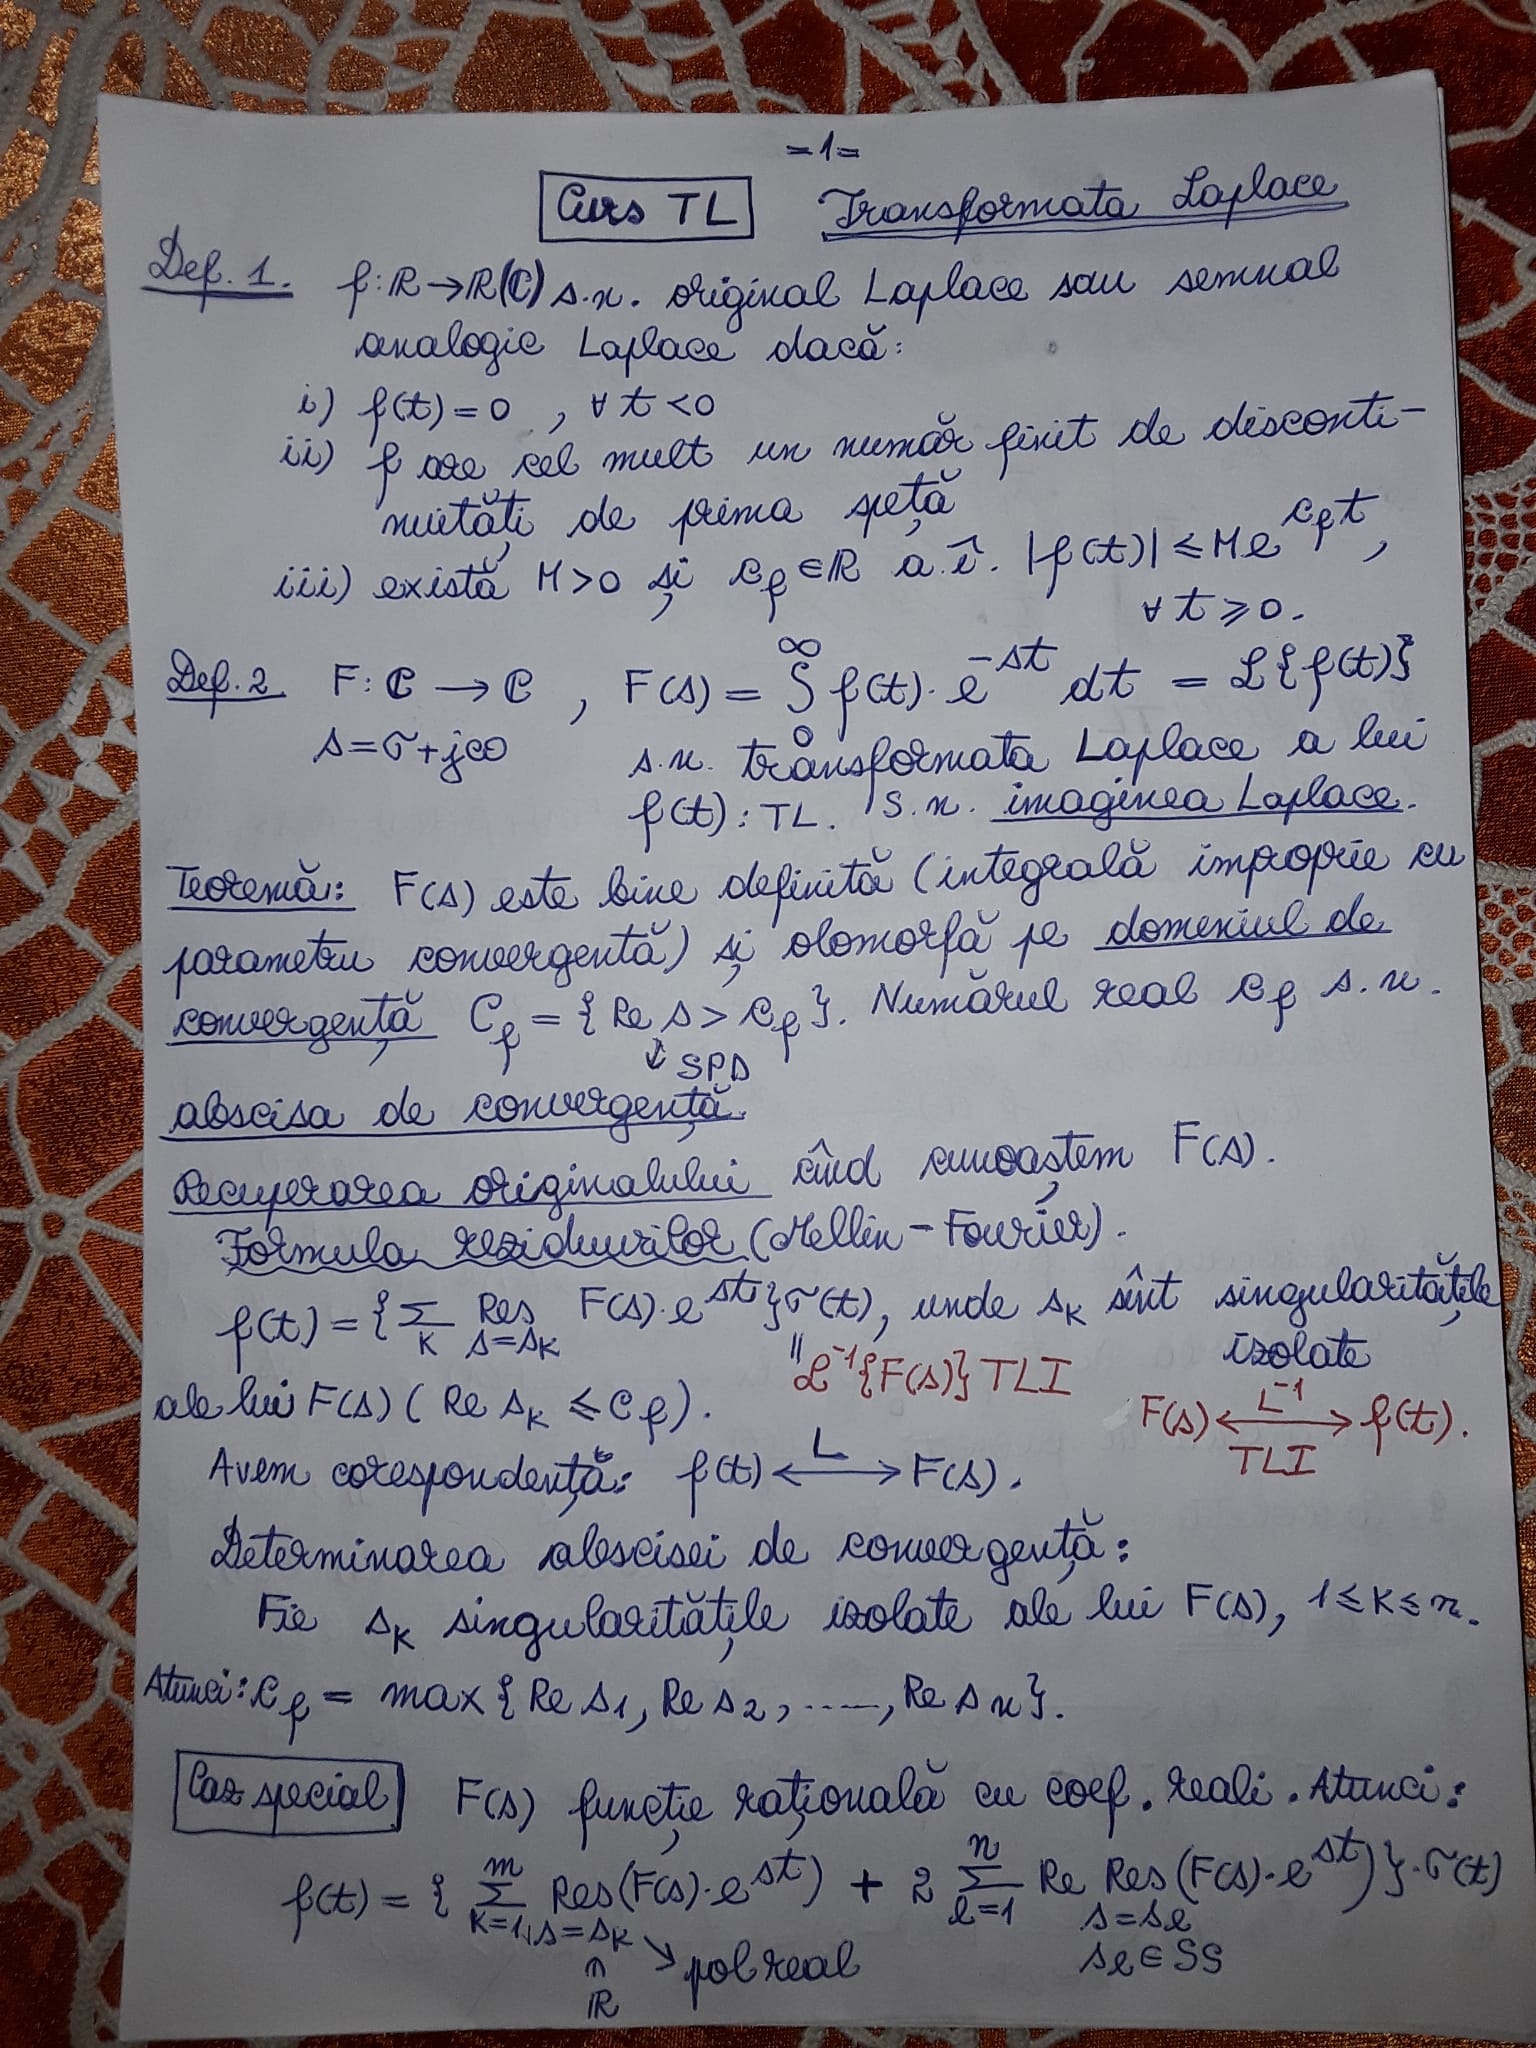 =1=
Curs TL Transformata Laplace
Def. 1. f: ℝ→ℝ(ℂ) s.n. original Laplace sau semnal
analogic Laplace dacă:
i) f(t)=0 , ∀ t<0
ii) f are cel mult un număr finit de disconti-
nuități de prima speță
iii) există M>0 și c_f ∈ℝ a.î. |f(t)| ≤ M e^{c_f t},
∀ t ⩾ 0.
Def. 2 F: ℂ → ℂ , F(s) = ∫_0^∞ f(t)· e^{-st} dt = L{f(t)}
s=σ+jω s.n. transformata Laplace a lui
f(t): TL. S.n. imaginea Laplace.
Teoremă: F(s) este bine definită (integrală improprie cu
parametru convergentă) și olomorfă pe domeniul de
convergență C_f = {Re s > c_f}. Numărul real c_f s.n.
↓ SPD
abscisa de convergență.
Recuperarea originalului cînd cunoaștem F(s).
Formula reziduurilor (Mellin-Fourier).
f(t) = {Σ_k Res_{s=s_k} F(s)·e^{st}}σ(t), unde s_k sînt singularitățile
izolate
" L^{-1}{F(s)} TLI
ale lui F(s) ( Re s_k ≤ c_f).
F(s) ⟷^{L^{-1}}_{TLI} f(t).
Avem corespondență: f(t) ⟷^{L} F(s).
Determinarea abscisei de convergență:
Fie s_k singularitățile izolate ale lui F(s), 1≤k≤n.
Atunci: c_f = max{Re s_1, Re s_2, ....., Re s_n}.
Caz special F(s) funcție rațională cu coef. reali. Atunci:
f(t) = { Σ_{k=1}^{m} Res_{s=s_k} (F(s)·e^{st}) + 2 Σ_{l=1}^{n} Re Res_{s=s_l} (F(s)·e^{st}) }·σ(t)
∩ → pol real s_l ∈ SS
ℝ